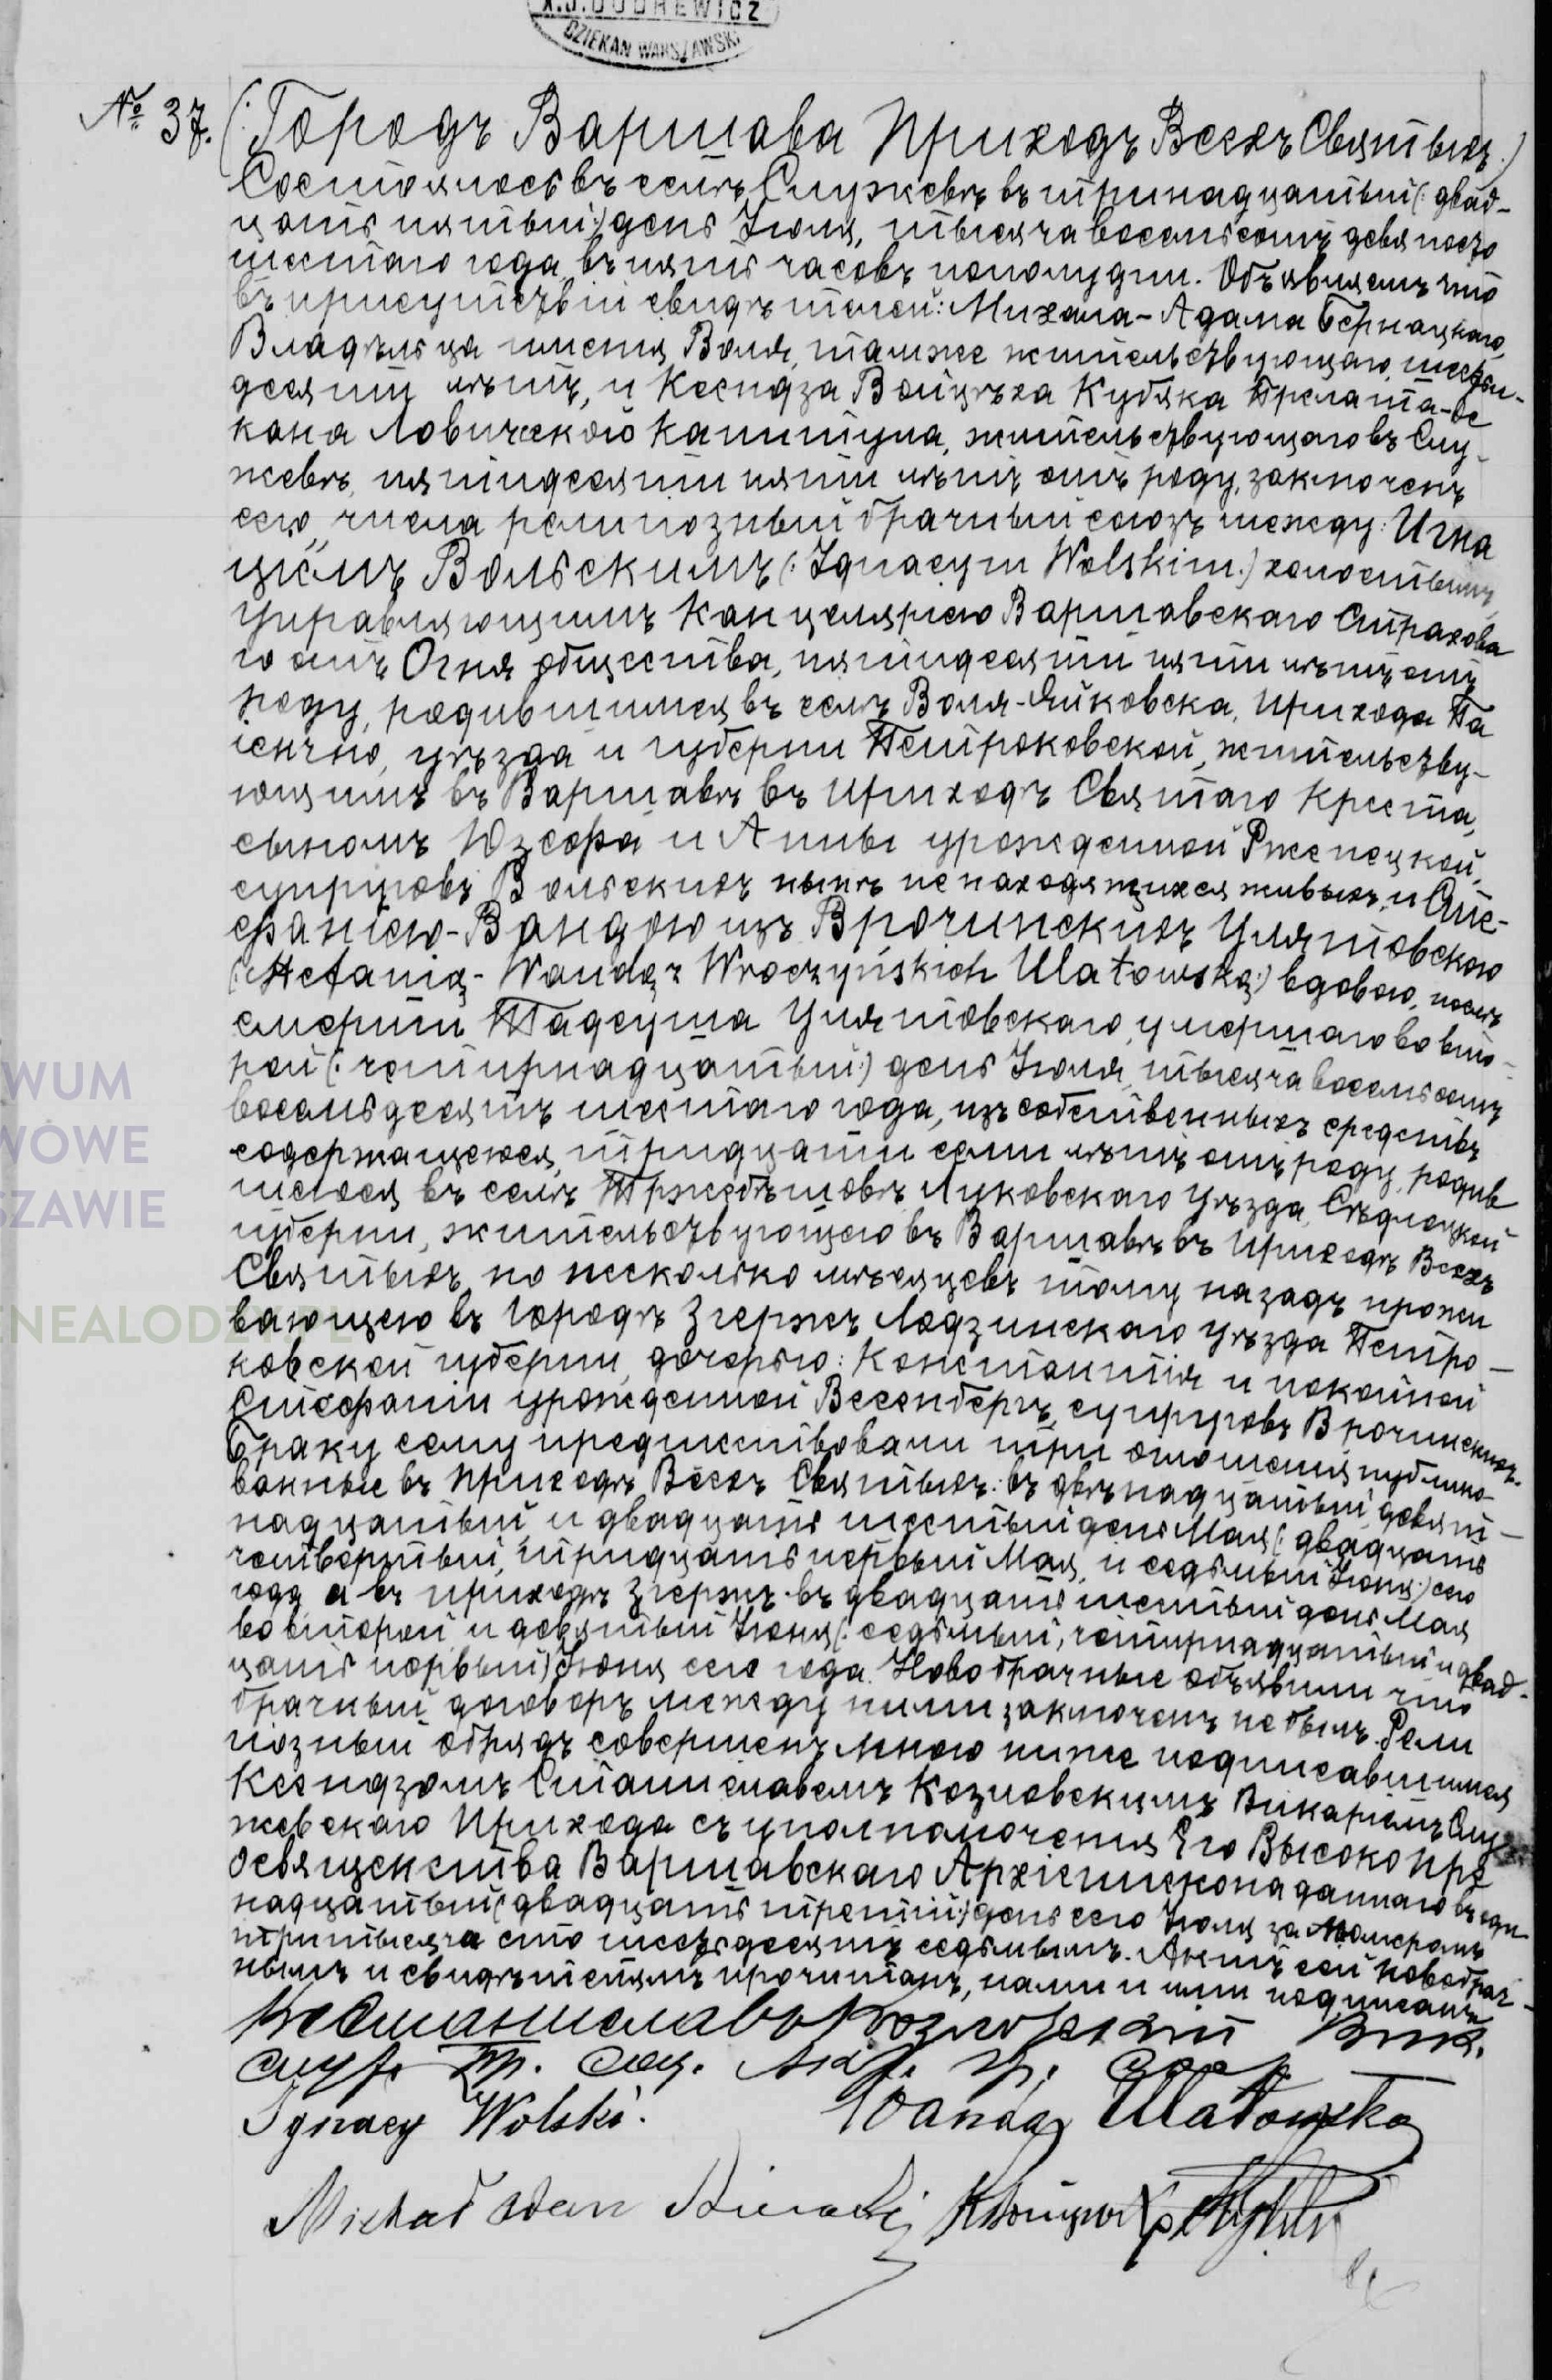 X.J.DUDREWICZ
DZIEKAN WARSZAWSKI
№ 37. (: Городъ Варшава Приходъ Всехъ Святыхъ :)
Состоялось въ селѣ Служевѣ въ тринадцатый (: двад-
цать пятый :) день Іюля, тысяча восемьсотъ девяносто
шестаго года, въ пять часовъ пополудни. Объявляемъ что
въ присутствіи свидѣтелей: Михала-Адама Бернацкаго,
Владѣльца имѣнія Воля, тамже жительствующаго, шесть-
десяти лѣтъ, и Ксендза Войцѣха Кубяка Прелата-де
кана Ловичской Капитула, жительствующаго въ Слу-
жевѣ, пятидесяти пяти лѣтъ отъ роду, заключенъ
сего числа религіозный брачный союзъ между: Игна
ціемъ Вольскимъ (: Ignacym Wolskim :) холостымъ,
Управляющимъ Канцеляріею Варшавскаго Страхова
го отъ Огня общества, пятидесяти пяти лѣтъ отъ
роду, родившимся въ селѣ Воля-Яйковска, Прихода Па
енчно, уѣзда и губерніи Петроковской, жительству-
ющимъ въ Варшавѣ въ приходѣ Святаго Креста,
сыномъ Юзефа и Анны урожденной Ржепецкой,
супруговъ Вольскихъ нынѣ не находящихся живыхъ, и Сте-
фаніею-Вандою изъ Врочинскихъ Улятовскою
(: Stefanią-Wandą z Wroczyńskich Ulatowską :) вдовою, послѣ
смерти Тадеуша Улятовскаго, умершаго во вто-
рой (: четырнадцатый :) день Іюля, тысяча восемьсотъ
восемьдесятъ шестаго года, изъ собственныхъ средствъ
содержащеюся, тридцати семи лѣтъ отъ роду, родив
шеюся въ селѣ Тржебѣшовѣ, Луковскаго Уѣзда, Сѣдлецкой
губерніи, жительствующею въ Варшавѣ въ приходѣ Всехъ
Святыхъ, но несколько мѣсяцевъ тому назадъ прожи
вающею въ городѣ Згержѣ Лодзинскаго уѣзда Петро-
ковской губерніи, дочерью: Константія и покойной
Стефаніи урожденной Весенбергъ, супруговъ Врочинскихъ.
Браку сему предшествовали три оглошенія публико-
ванные въ Приходѣ Всехъ Святыхъ: въ двѣнадцатый, девят-
надцатый и двадцать шестый день Мая (: двадцать
четвертый, тридцать первый Мая, и седьмый Іюня :) сего
года а въ приходѣ Згержѣ: въ двадцать шестый день Мая
во второй и девятый Іюня (: седьмый, четырнадцатый и двад-
цать первый) Іюня сего года. Новобрачные объявили что
брачный договоръ между ними заключенъ не былъ. Рели
гіозный обрядъ совершенъ мною ниже подписавшимся
Ксендзомъ Станиславомъ Козловскимъ Викаріемъ Слу
жевскаго Прихода съ уполномоченія Его Высокопре
освященства Варшавскаго Архіепископа даннаго въ един
надцатый (двадцать третій :) день сего Іюля за Номеромъ
три тысяча сто шестьдесятъ седьмымъ. Актъ сей новобрач-
нымъ и свидѣтелямъ прочитанъ, нами и ими подписанъ.
Кс Станиславъ Козловскій Вик.
Ignacy Wolski. Wanda Ulatowska
Michał Adam Biernacki